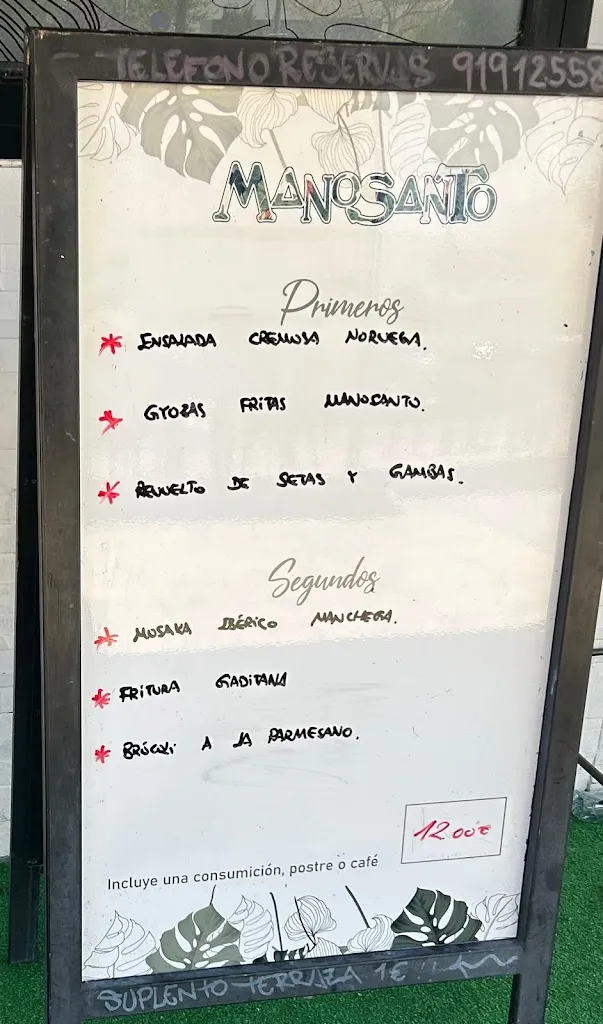 TELEFONO RESERVAS 91912558
MANOSANTO
Primeros
* ENSALADA CREMOSA NORUEGA.
* GYOZAS FRITAS MANOSANTO.
* REVUELTO DE SETAS Y GAMBAS.
Segundos
* MUSAKA IBÉRICO MANCHEGA.
* FRITURA GADITANA
* BRÓCOLI A LA PARMESANO.
12.00€
Incluye una consumición, postre o café
SUPLENTO TERRAZA 1€!!